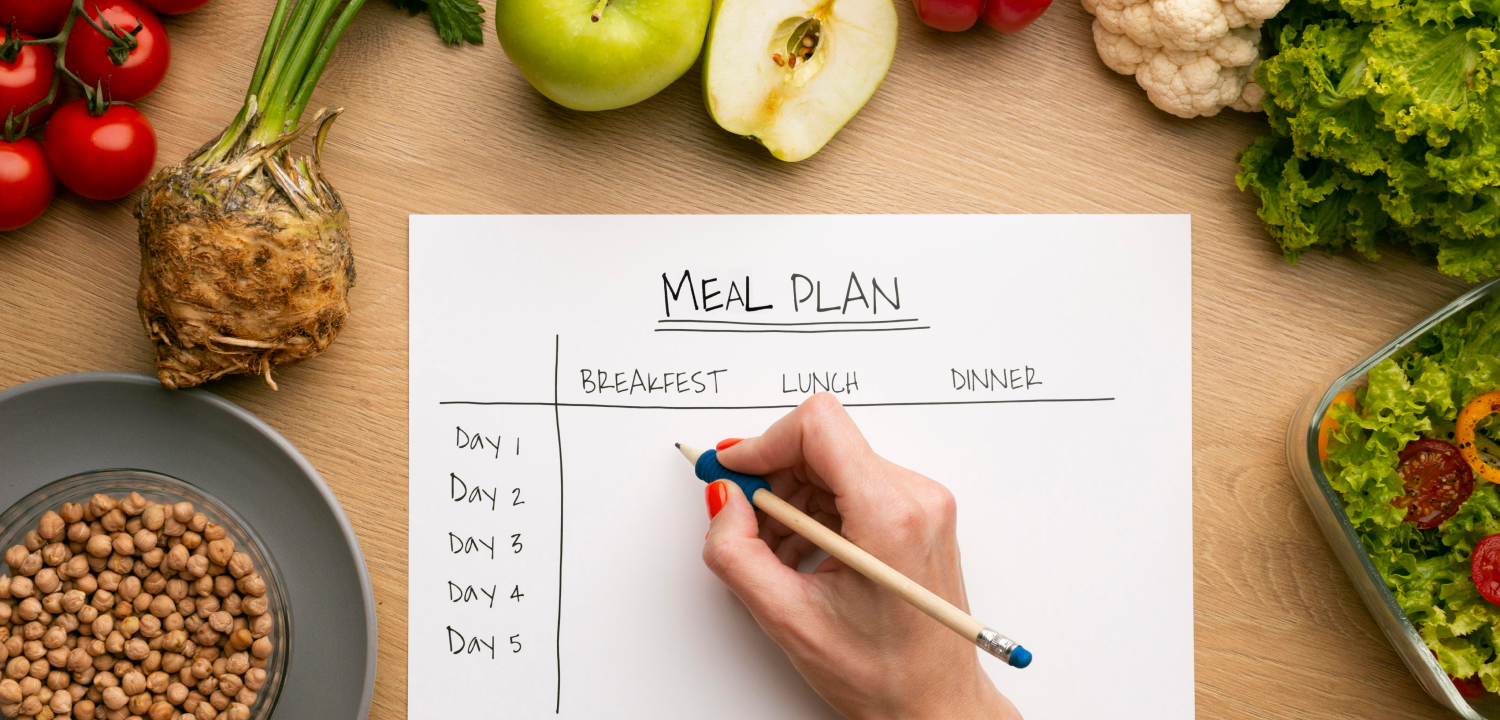 MEAL PLAN
BREAKFEST LUNCH DINNER
Day 1
Day 2
Day 3
Day 4
Day 5